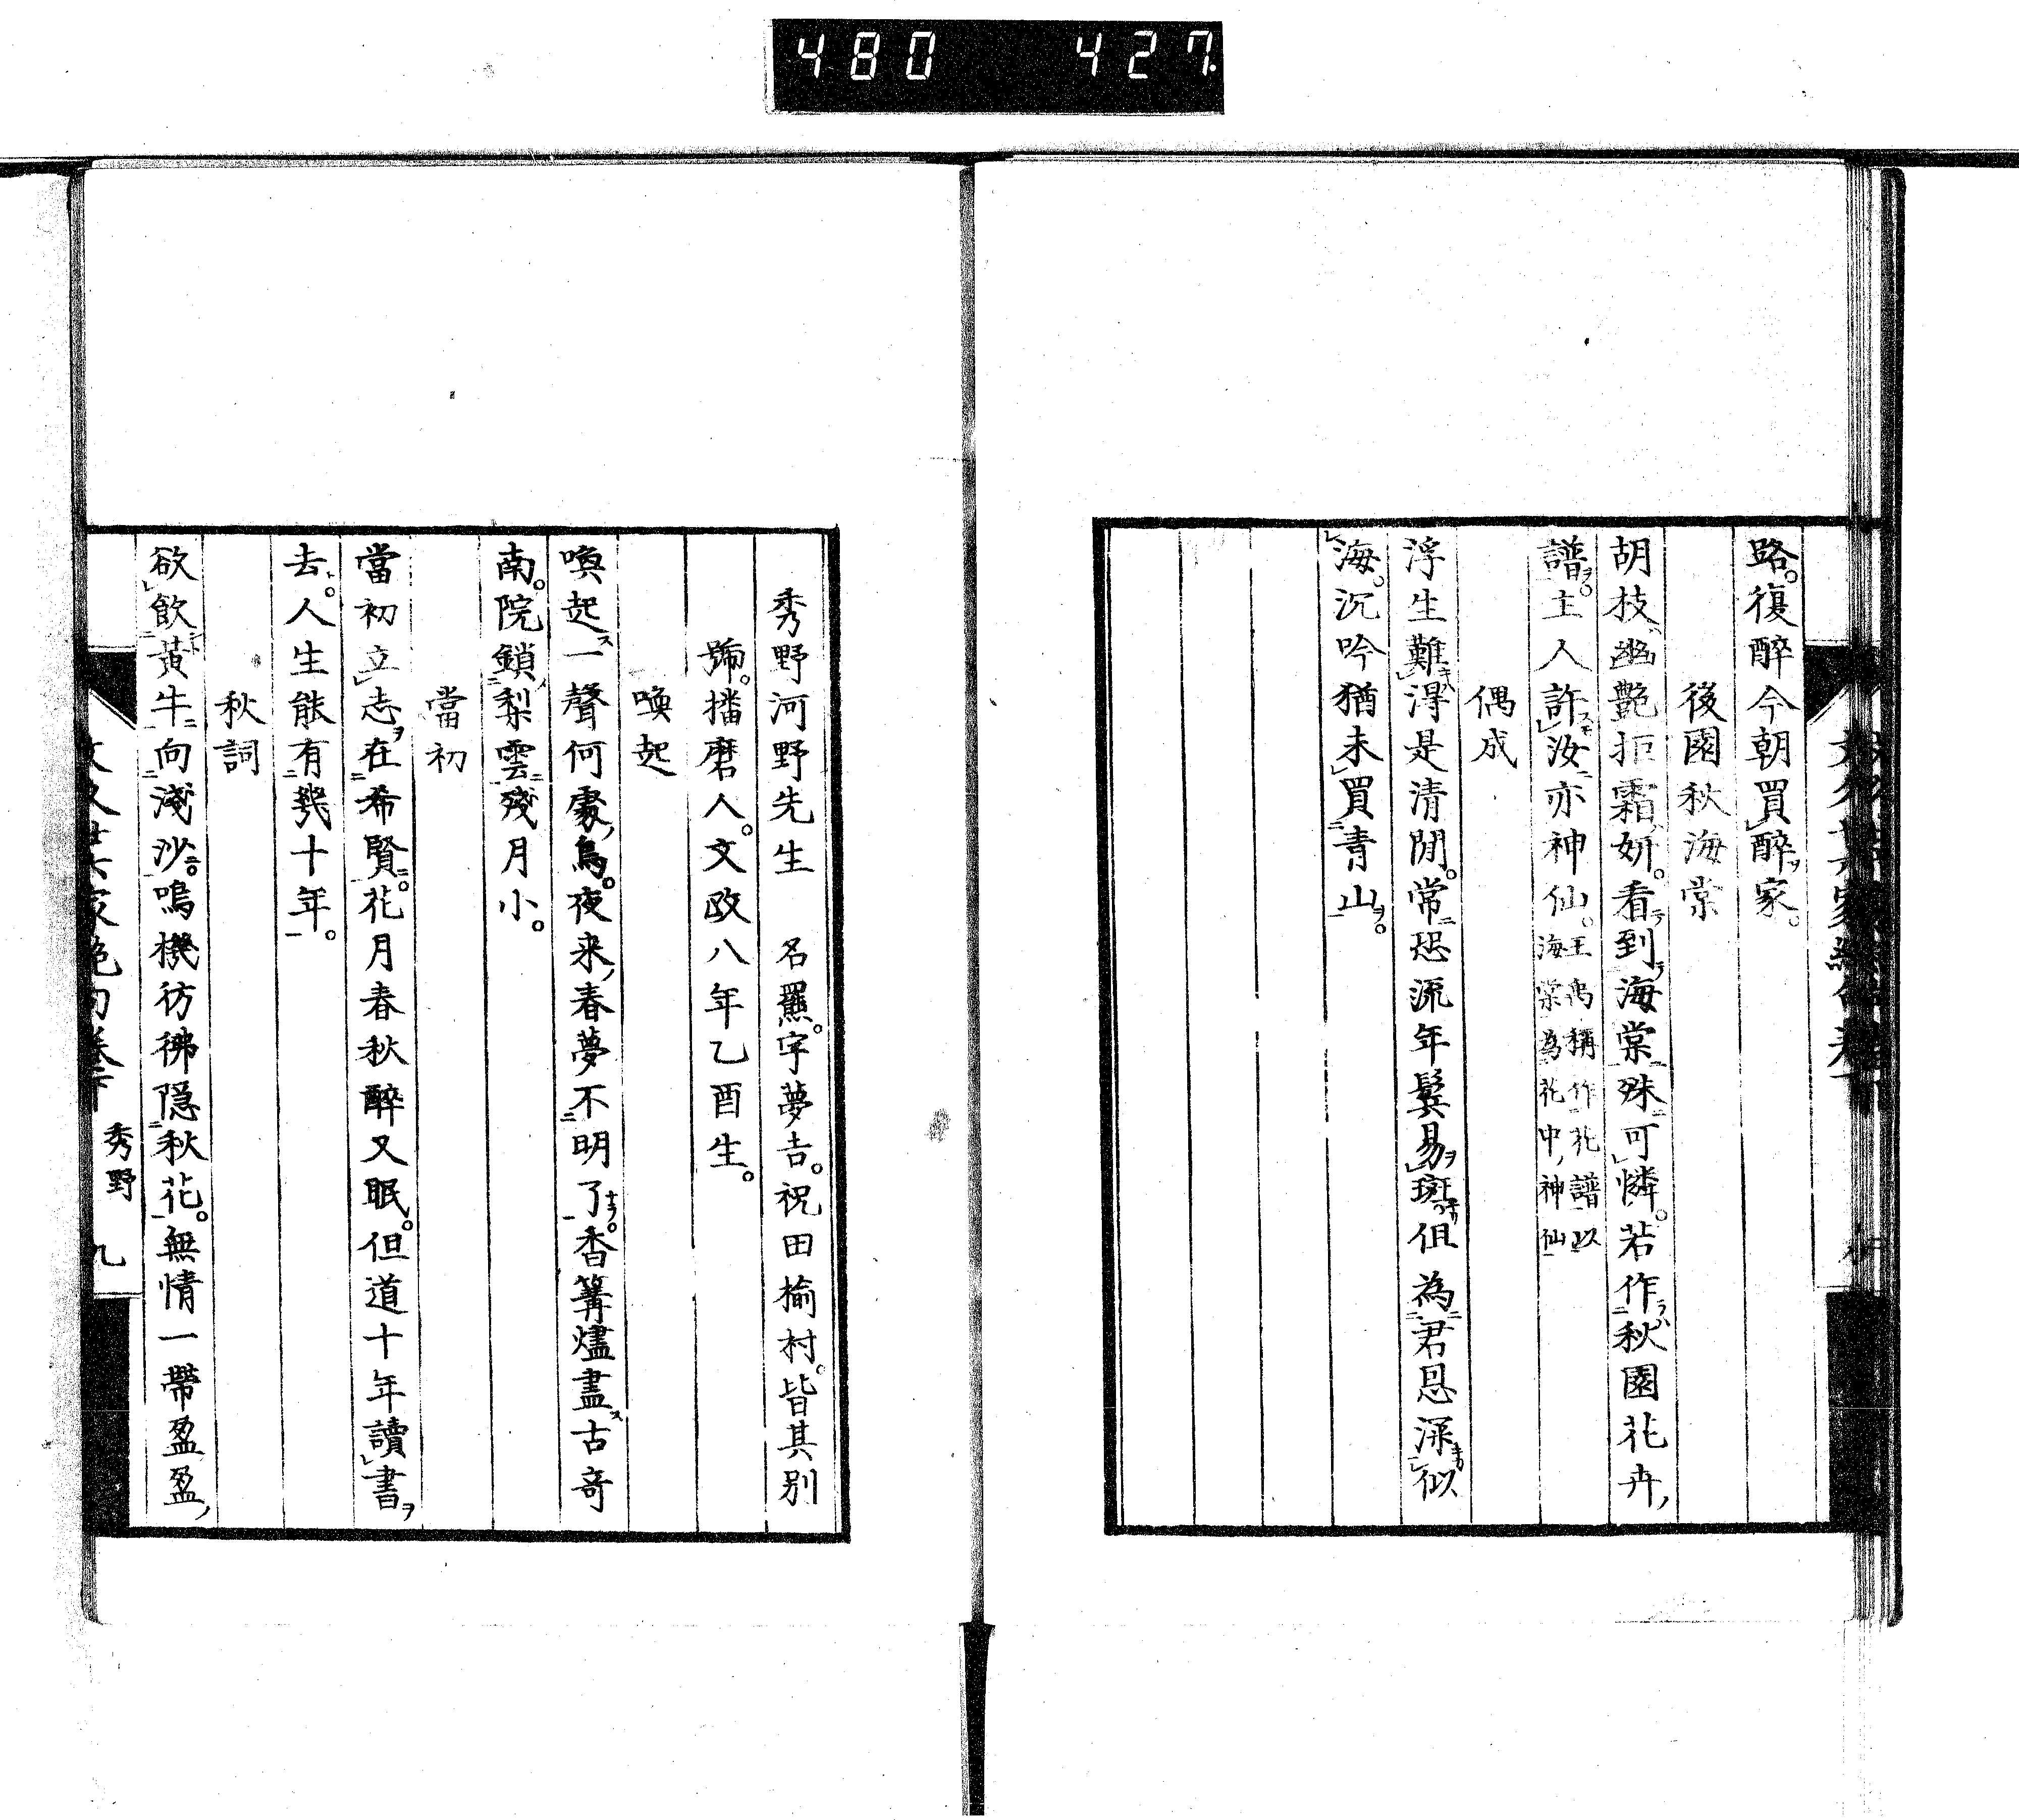 480 427
路。復醉今朝買醉家。
後園秋海棠
胡枝幽艷拒霜妍。看到海棠殊可憐。若作秋園花卉
譜。主人許汝亦神仙。王禹稱作花譜以海棠為花中神仙
偶成
浮生難得是清閒。常恐流年鬢易斑。但為君恩深似
海。沉吟猶未買青山。
秀野河野先生 名羆。字夢吉。祝田楡村。皆其別
號。播磨人。文政八年乙酉生。
喚起
喚起一聲何處鳥。夜来春夢不明了。香篝燼盡古奇
南。院鎖梨雲殘月小。
當初
當初立志在希賢。花月春秋醉又眠。但道十年讀書
去。人生能有幾十年。
秋詞
欲飲黃牛向淺沙。鳴機彷彿隠秋花。無情一帶盈盈
秀野 九